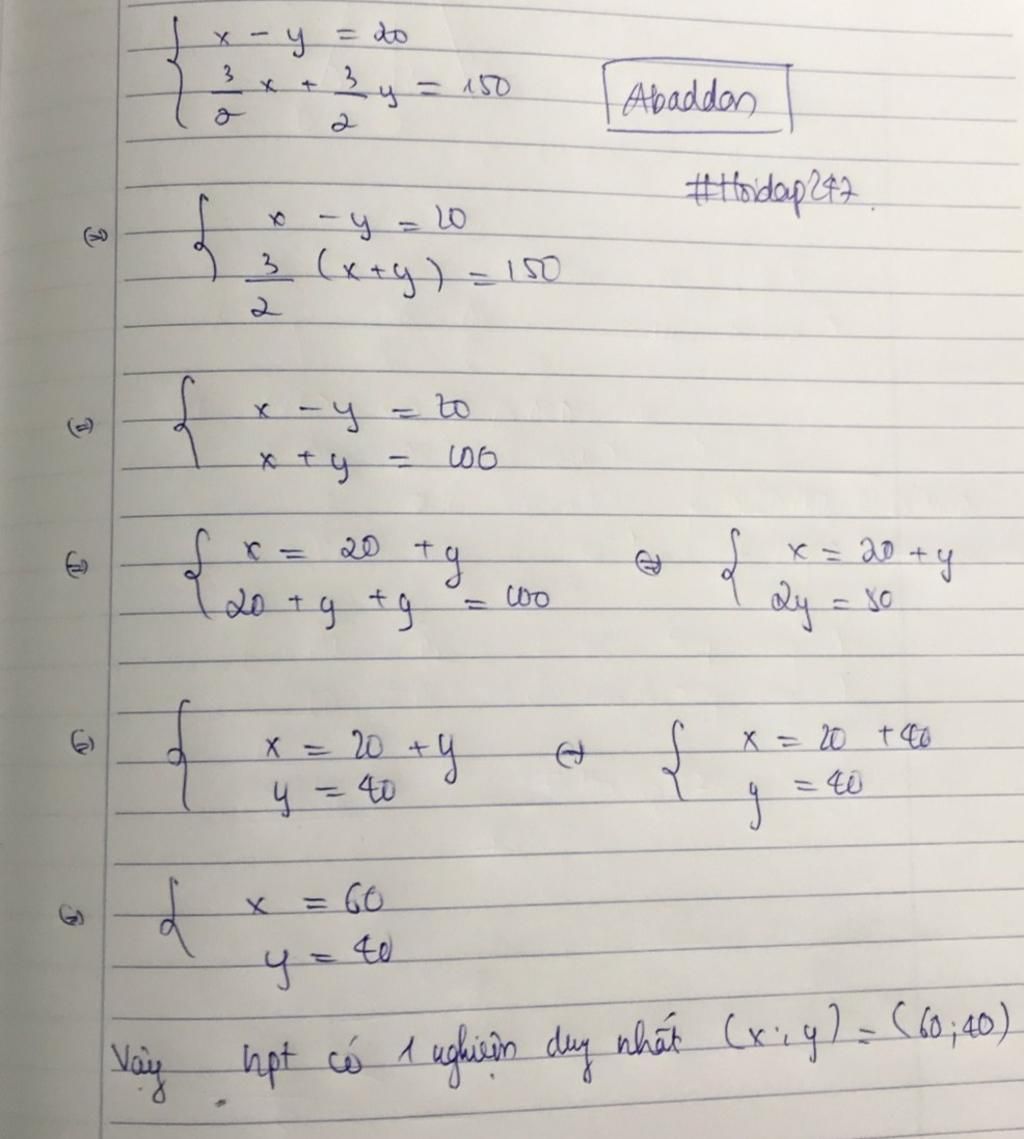 x - y = 20
3/2 x + 3/2 y = 150
Abaddon
#Hoidap247.
⇔ { x - y = 20
3/2 (x+y) = 150
⇔ { x - y = 20
x + y = 100
⇔ { x = 20 + y ⇔ { x = 20 + y
20 + y + y = 100 2y = 80
⇔ { x = 20 + y ⇔ { x = 20 + 40
y = 40 y = 40
⇔ { x = 60
y = 40
Vậy hpt có 1 nghiệm duy nhất (x;y) = (60;40)